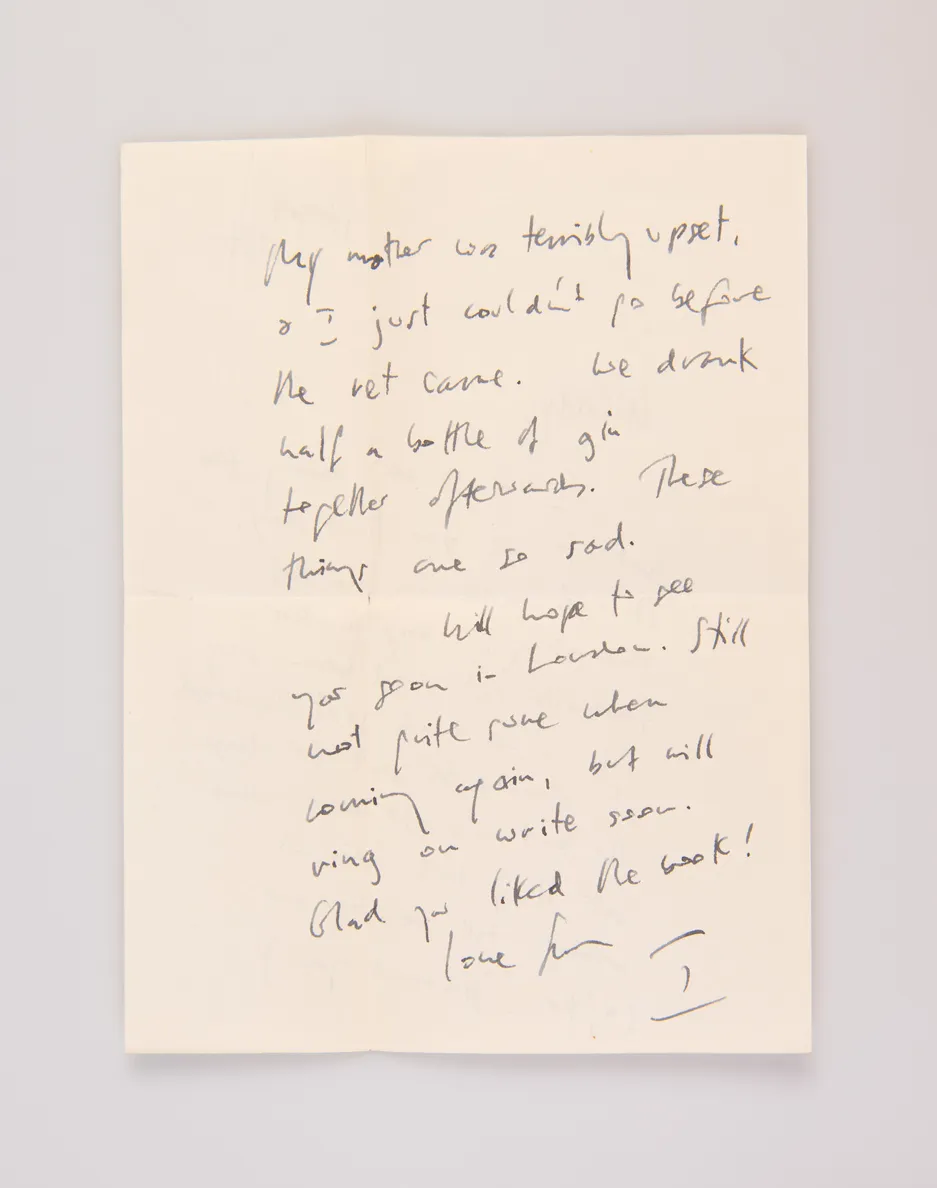 My mother was terribly upset,
& I just couldn't go before
the vet came. We drank
half a bottle of gin
together afterwards. These
things are so sad.
Will hope to see
you soon in London. Still
not quite sure when
coming again, but will
ring or write soon.
Glad you liked the book!
love from I